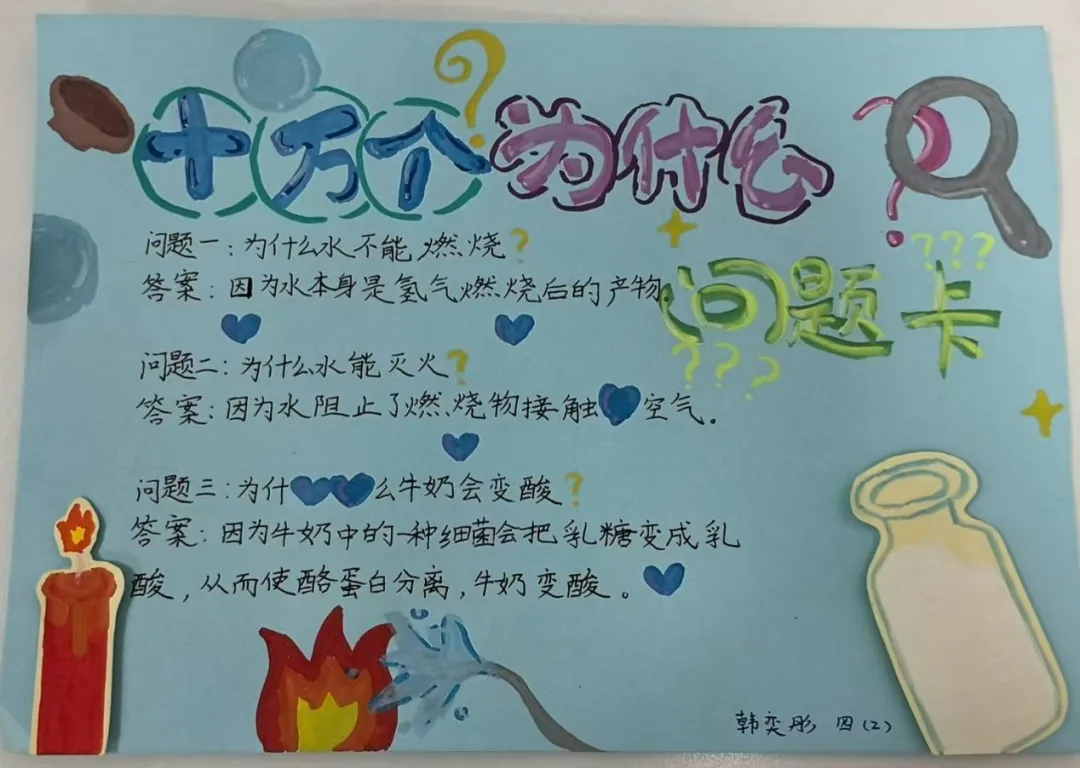 十万个为什么
问题卡
问题一：为什么水不能燃烧?
答案：因为水本身是氢气燃烧后的产物。
问题二：为什么水能灭火?
答案：因为水阻止了燃烧物接触空气。
问题三：为什么牛奶会变酸?
答案：因为牛奶中的一种细菌会把乳糖变成乳
酸，从而使酪蛋白分离，牛奶变酸。
韩奕彤 四(2)